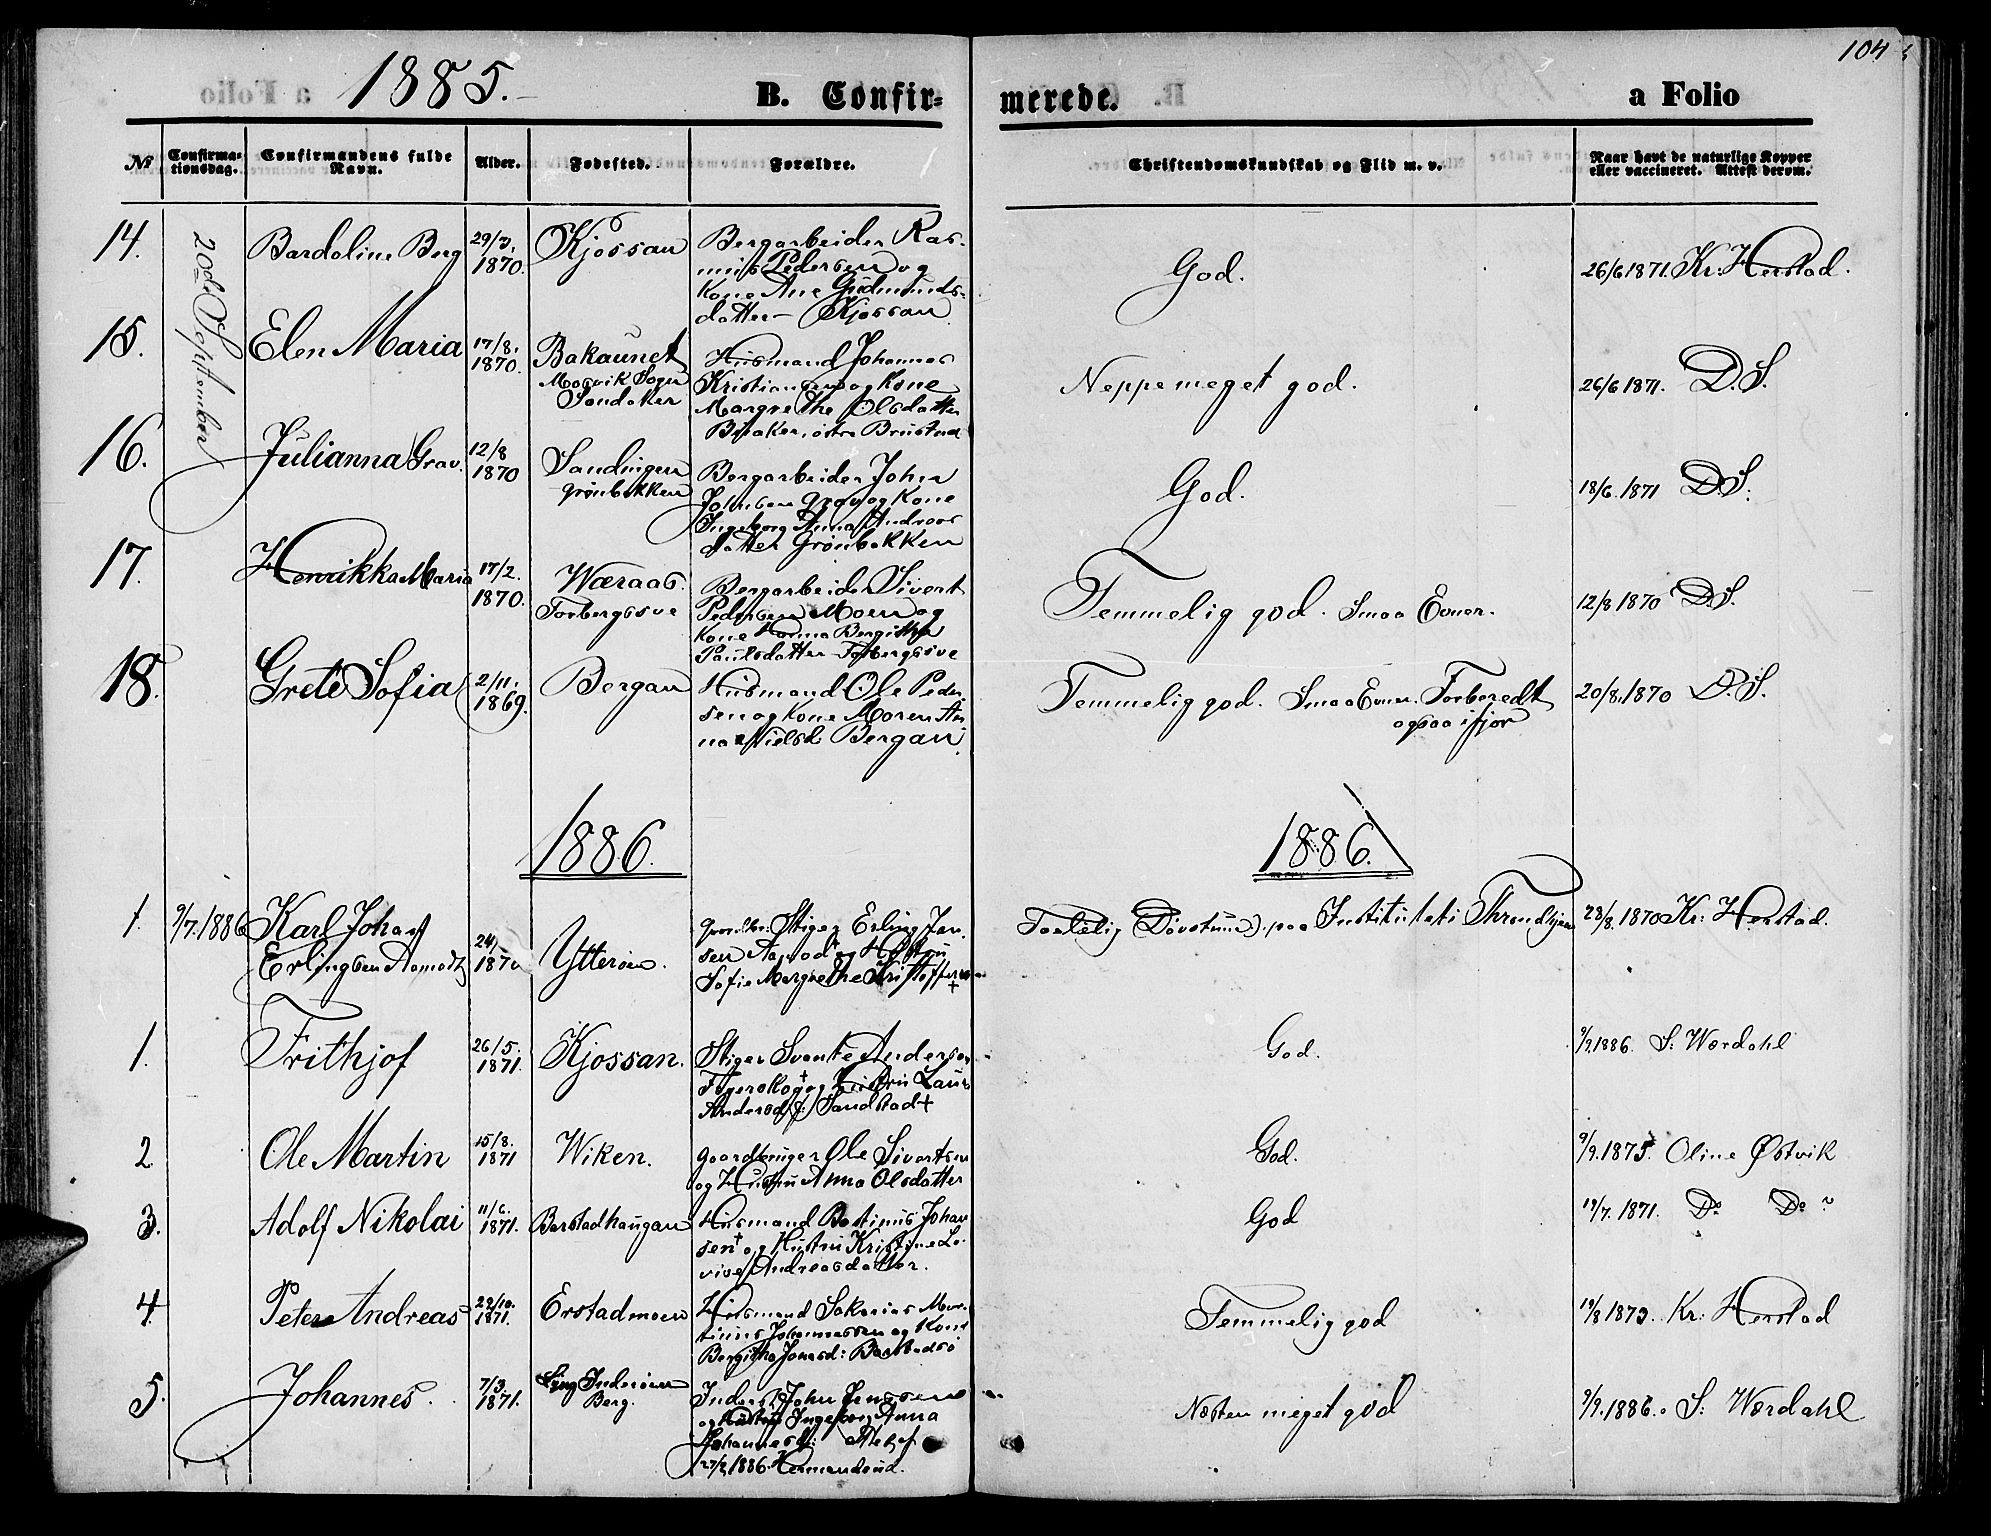 104
a Folio 1885. B. Confir-
merede. a Folio
No
Confirma-
tionsdag.
Confirmandens fulde
Navn.
Alder.
Fødested.
Forældre.
Christendomskundskab og Flid m. v.
Naar havt de naturlige Kopper
eller vaccineret. Attest derom.
20de September
14.
Bardoline Berg
29/3.
1870.
Kjossan
Bergarbeider Ras-
mus Pedersen og
Kone Ane Gudmunds-
datter - Kjossan
God.
26/6 1871. Kr: Herstad.
15.
Elen Maria
17/8.
1870.
Bakaunet
Mosvik Sogn
Sandaker
Husmand Johannes
Kristiansen og Kone
Margrethe Olsdatter
østre
Neppe meget god.
26/6 1871. D.S.
16.
Julianna Grav.
12/8
1870
Sandingen
Grønbakken
Bergarbeider John
Johnsen Grav og Kone
Ingeborg Anna Andreas
datter Grønbakken
God.
18/6. 1871 D.S.
17.
Henrikka Maria
17/2.
1870.
Wæraas.
Forbergsve
Bergarbeider Sivert
Pedersen Moen og
Kone Hanna Bergitha
Paulsdatter Forbergsve
Temmelig god. Smaa Evner.
12/8 1870 D.S.
18.
Grete Sofia
2/11.
1869.
Bergan
Husmand Ole Peder
sen og Kone Maren An
na Nielsd Bergan
Temmelig god. Smaa Evner. Forberedt
ogsaa ifjor
20/8. 1870 D.S.
1886.
1886.
1.
9/7.1886
Karl Johan
Erlingsen Aamodt
24/
1870
Ytterøen.
Stiger Erling Jen
sen Aamodt og Hustru
Sofie Margrethe Kristoffersen
+
Taalelig (Døvstum). paa Institutet i Throndhjem
28/8. 1870 Kr: Herstad.
1.
Frithjof
26/5.
1871.
Kjossan.
Stiger Svante Anderson
Fagerskog + og Hustru Laura
Andersd. f: Sandstad +
God.
9/9.1886. S: Wærdahl
2
Ole Martin
15/8.
1871
Wiken.
Gaardbruger Ole Sivertsen
og Hustru Anna Olsdatter
God.
9/9.1875. Oline Østvik
3.
Adolf Nikolai
11/6.
1871.
Barstadhaugan
Husmand Bastinus Johan
sen + og Hustru Kristine Lo
vise Andreasdatter.
God
19/7. 1871. Do Do
4.
Peter Andreas
29/10.
1871.
Erstadmoen
Husmand Sakarias Mar-
tinus Johannessen og Kone
Bergitha Jonasd: Barstadsø
Temmelig god
19/8 1873. Kr: Herstad
5.
Johannes.
7/3.
1871.
Inderøen
Berg.
Inders. John Jenssen
og Hustru Ingeborg Anna
Johannesd:
27/2 1886. Hermandsnd.
Næsten meget god
9/9.1886. S: Wærdahl